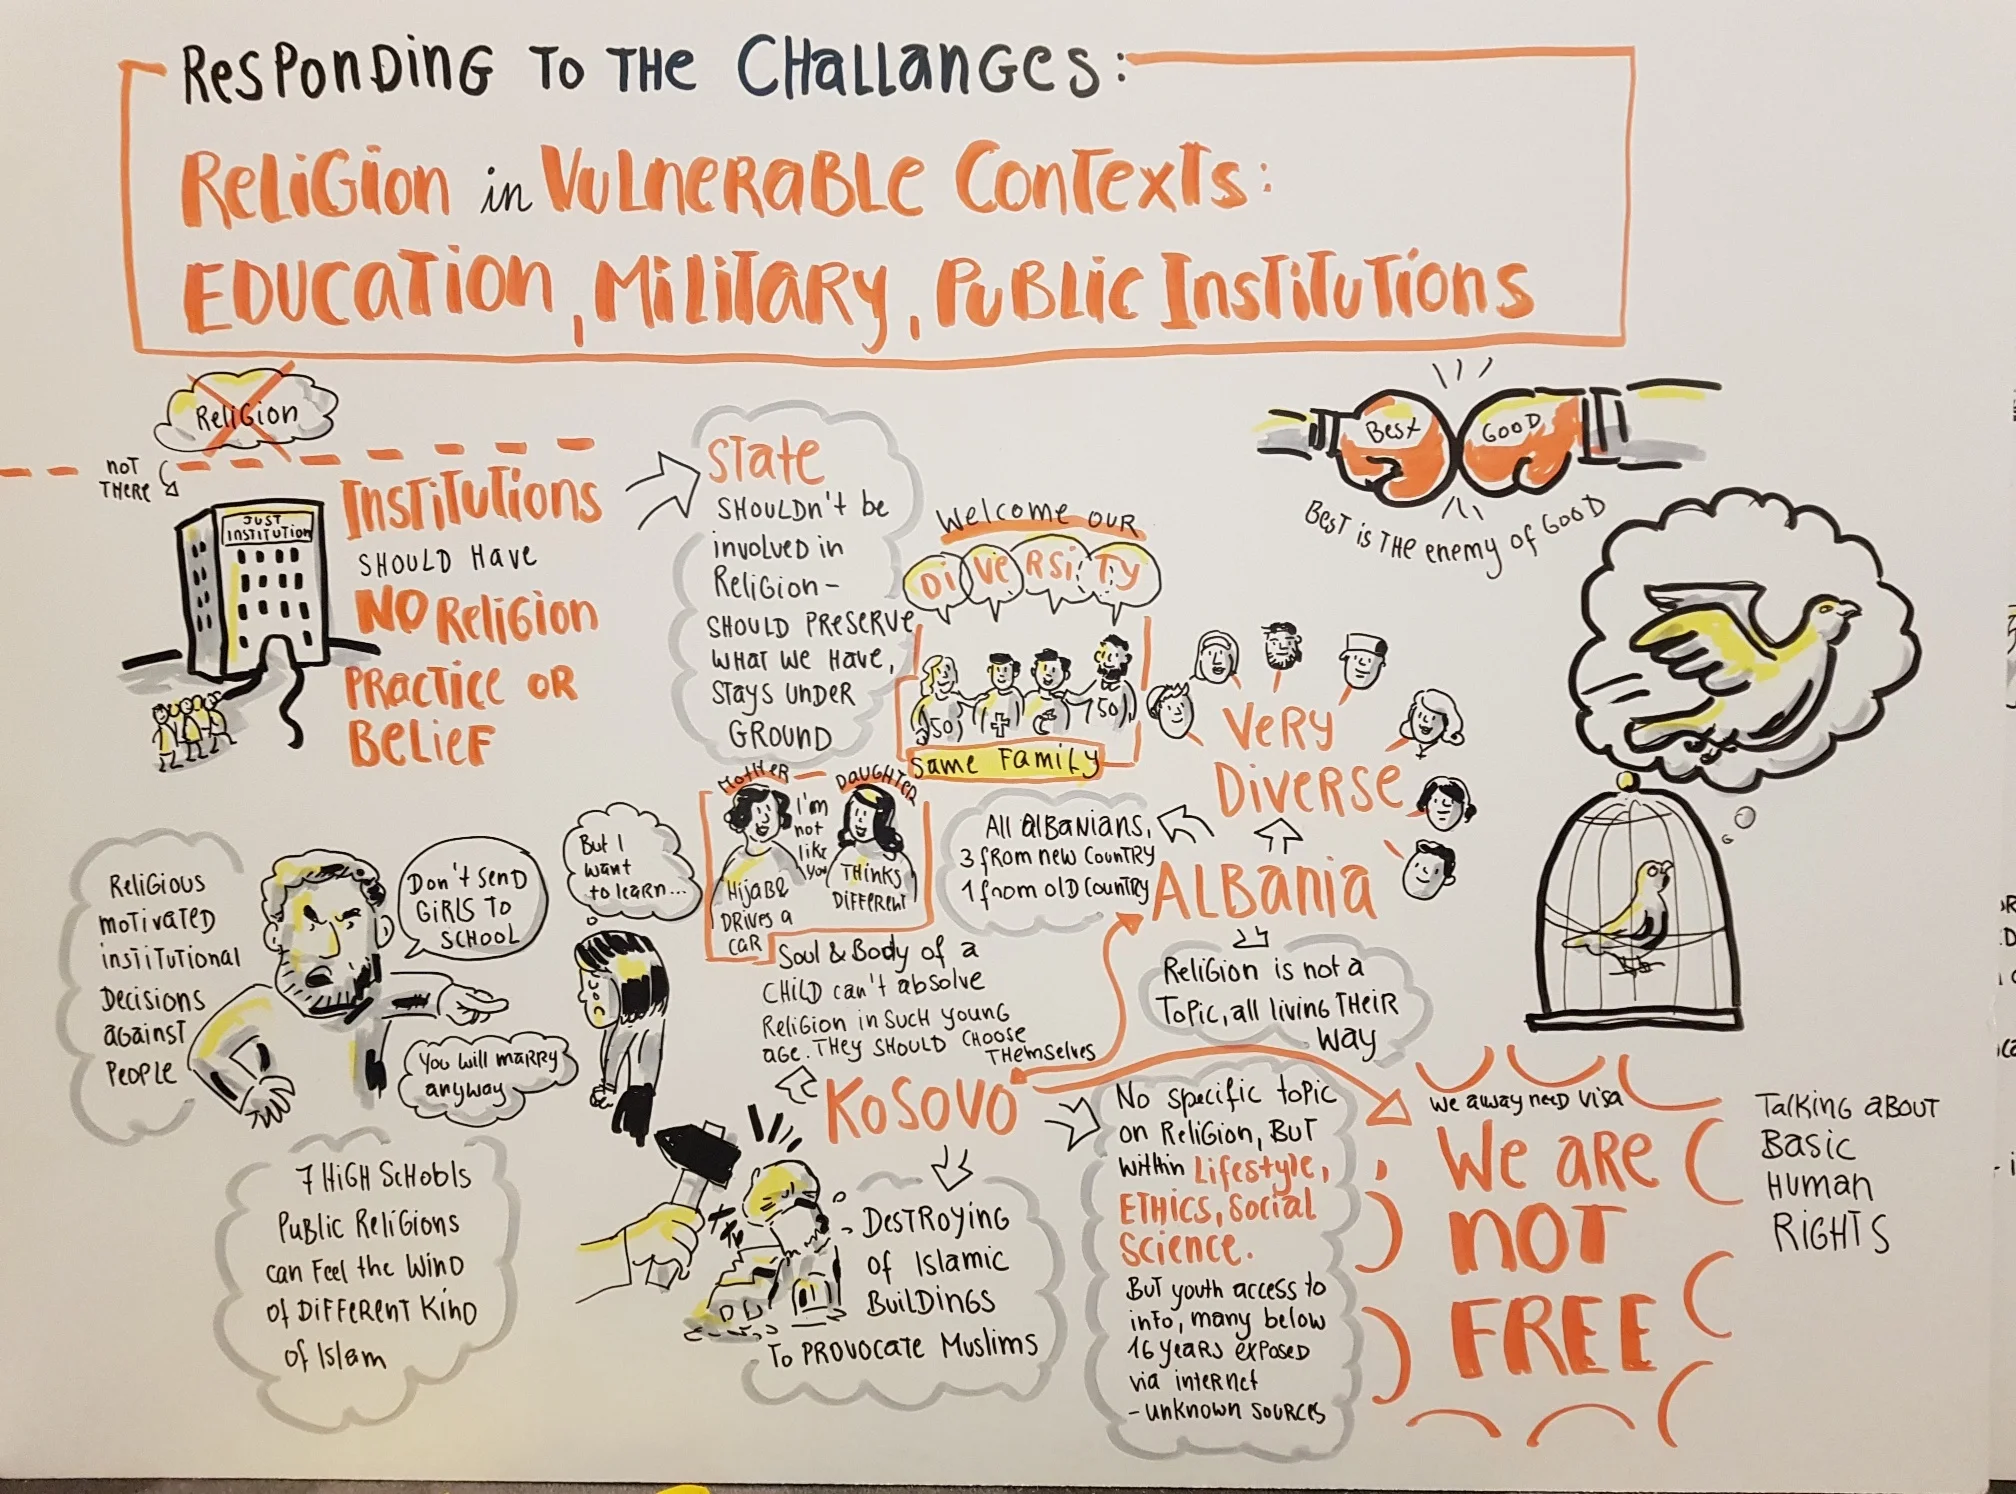 Responding to the Challanges:
Religion in Vulnerable Contexts:
Education, Military, Public Institutions
Religion
not
there
Just
Institution
Institutions
should have
NO Religion
Practice or
Belief
State
shouldn't be
involved in
Religion –
should preserve
what we have,
stays under
ground
Welcome our
Diversity
50
50
same family
Best
Good
Best is the enemy of good
Very
Diverse
All Albanians,
3 from new country
1 from old country
Albania
Religion is not a
topic, all living their
way
Mother
Daughter
I'm
not
like
you
Hijab &
drives a
car
Thinks
different
Soul & Body of a
child can't absolve
Religion in such young
age. They should choose
themselves
Religious
motivated
institutional
decisions
against
people
Don't send
girls to
school
But I
want
to learn...
You will marry
anyway
7 high schools
Public Religions
can feel the wind
of different kind
of Islam
Kosovo
Destroying
of Islamic
Buildings
to provocate Muslims
No specific topic
on Religion, but
within Lifestyle,
Ethics, Social
Science.
But youth access to
info, many below
16 years exposed
via internet
- unknown sources
We away need visa
We are
not
free
Talking about
Basic
Human
Rights